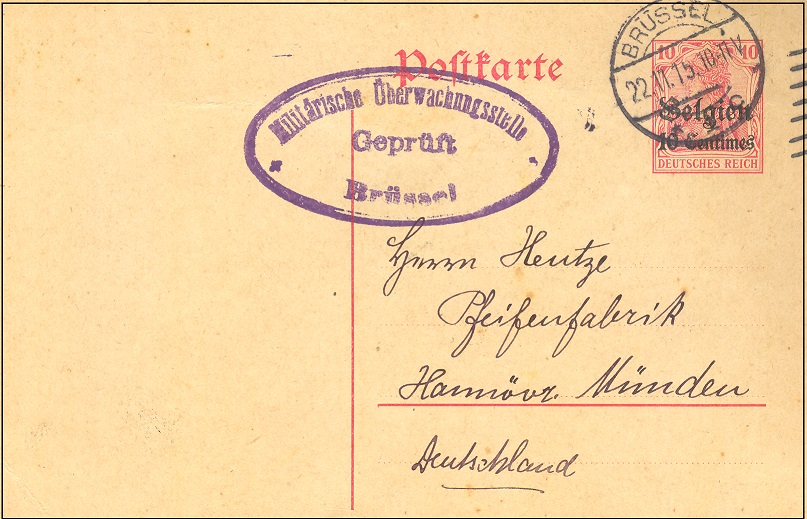 Postkarte
BRÜSSEL
22.VI.15.10-11V.
10 10
Belgien
10 Centimes
DEUTSCHES REICH
Militärische Überwachungsstelle
Geprüft
Brüssel
Herrn Hentze
Pfeifenfabrik
Hannövr. Münden
Deutschland